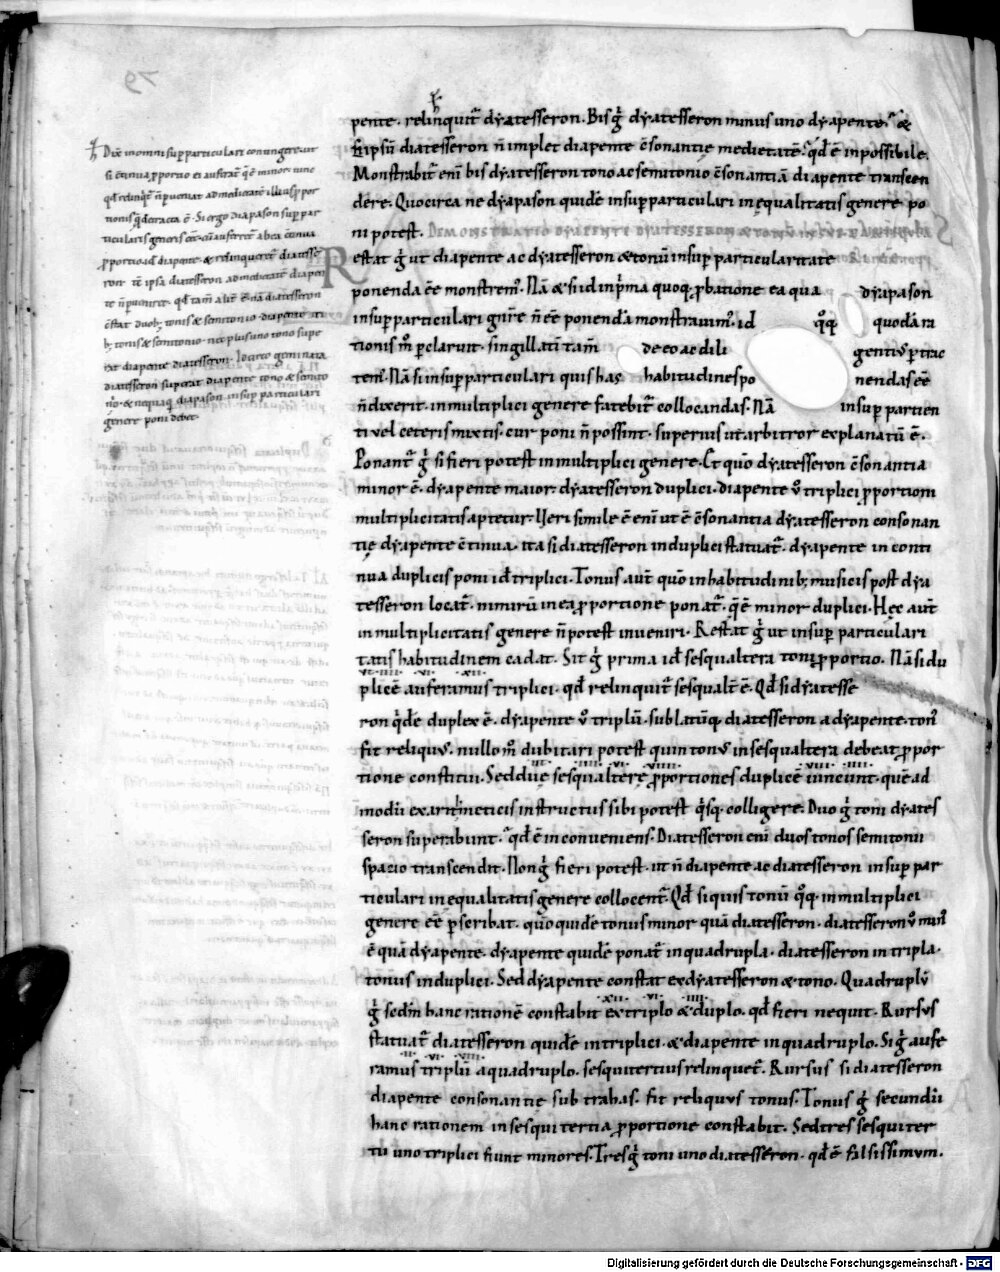 pente. relinquit̄ dyatesseron. Bis gͥ dyatesseron minus uno dyapente. &
ipsū diatesseron n̄ implet diapente c̄sonantię medietatē. qd̄ ē inpossibile.
Monstrabit̄ eni bis dyatesseron tono ac semitonio c̄sonantiā diapente transcen
dere. Quocirca ne dyapason quidē insup̱particulari inequalitatis genere po
ni potest. DEMONSTRATIO DYAPENTE DYATESSERON & TONŪ IN SUP
Restat gͥ ut diapente ac dyatesseron & tonū insup̱ particularitate
ponenda ēe monstrem᷒. Nā & si id in p̄ma quoq; p̱batione ea qua dyapason
insup̱particulari gn̄re n̄ ēe ponendā monstravim᷒. id q̊q; quodā ra
tionis m̊ p̱claruit. singillati tam̄ de eo ac dili gentius p̱trac
tem᷒. Nā si insup̱particulari quis has habitudines po nendas ēe
n̄ dixerit. in multiplici genere fatebit̄ collocandas. Nā insup̱ partien
ti vel ceteris mixtis. cur poni n̄ possint. superius ut arbitror explanatū ē.
Ponant̄ gͥ si fieri potest in multiplici genere. Et quō dyatesseron c̄sonantia
minor ē. dyapente maior. dyatesseron duplici. diapente v̊ triplici p̱portioni
multiplicitatis aptetur. Veri simile ē eni ut ē c̄sonantia dyatesseron consonan
tię dyapente c̄tinua. ita si diatesseron in duplici statuat̄. dyapente in conti
nua duplicis poni id ē triplici. Tonus aut̄ quō in habitudinib; musicis post dya
tesseron locat̄. nimirū in ea p̱portione ponat̄. q̄ ē minor duplici. Hęc aut̄
in multiplicitatis genere n̄ potest inveniri. Restat gͥ ut insup̱ particulari
tatis habitudinem cadat. Sit gͥ prima id ē sesqualtera toni p̱portio. Nā si du
plicē auferamus triplici. qd̄ relinquit̄ sesqualt̄ ē. Qd̄ si dyatesse
ron qͥdē duplex ē. dyapente v̊ triplū. sublatūq; diatesseron a dyapente. ton᷒
fit reliquus. nullo m̊ dubitari potest quin tonus in sesqualtera debeat p̱por
tione constitui. Sed duę sesqualterę p̱portiones duplicē iungunt. quē ad
modū ex arithmeticis instructus sibi potest qͥsq; colligere. Duo gͥ toni dyates
seron superabunt. qd̄ ē inconveniens. Diatesseron eni duos tonos semitonii
spatio transcendit. Non gͥ fieri potest. ut n̄ diapente ac diatesseron insup̱ par
ticulari inequalitatis genere collocent̄. Qd̄ si quis tonū q̊q; in multiplici
genere ēe p̱scribat. quō quidē tonus minor quā diatesseron. diatesseron v̊ min᷒
ē quā dyapente. dyapente quidē ponat̄ in quadrupla. diatesseron in tripla.
tonus in duplici. Sed dyapente constat ex dyatesseron & tono. Quadruplū
gͥ sedm̄ hanc rationē constabit ex triplo & duplo. qd̄ fieri nequit. Rursus
statuat̄ diatesseron quidē in triplici. & diapente in quadruplo. Si gͥ aufe
ramus triplū a quadruplo. sesquitertius relinquet̄. Rursus si diatesseron
diapente consonantię subtrahas. fit reliquus tonus. Tonus gͥ secundū
hanc rationem in sesquitertia p̱portione constabit. Sed tres sesquiter
tii uno triplici fiunt minores. Tres gͥ toni uno diatesseron. qd̄ ē falsissimum.
Dixi in omni sup̱particulari coniungeretur
si c̄tinua p̱portio et auferat̄ q̄ ē minor
qd̄ relinqͥt̄ n̄ p̱veniat ad medietatē illius p̱por
tionis q̄ detracta ē. Si ergo diapason sup̱par
ticularis generis eēt. cū auferret̄ ab ea c̄tinua
p̱portio id ē diapente. & relinqueret̄ diatesse
ron n̄ ipsa diatesseron ad medietatē diapen
te n̄ p̱veniret. qd̄ tam̄ alit̄ ē. nā diatesseron
c̄stat duob; tonis & semitonio. diapente tri
b; tonis & semitonio. nec plus uno tono supe
rat diapente diatesseron. Iccirco geminata
diatesseron superat diapente tono & semito
nio. & nequaq̄ diapason insup̱ particulari
genere poni debet.
Digitalisierung gefördert durch die Deutsche Forschungsgemeinschaft - DFG